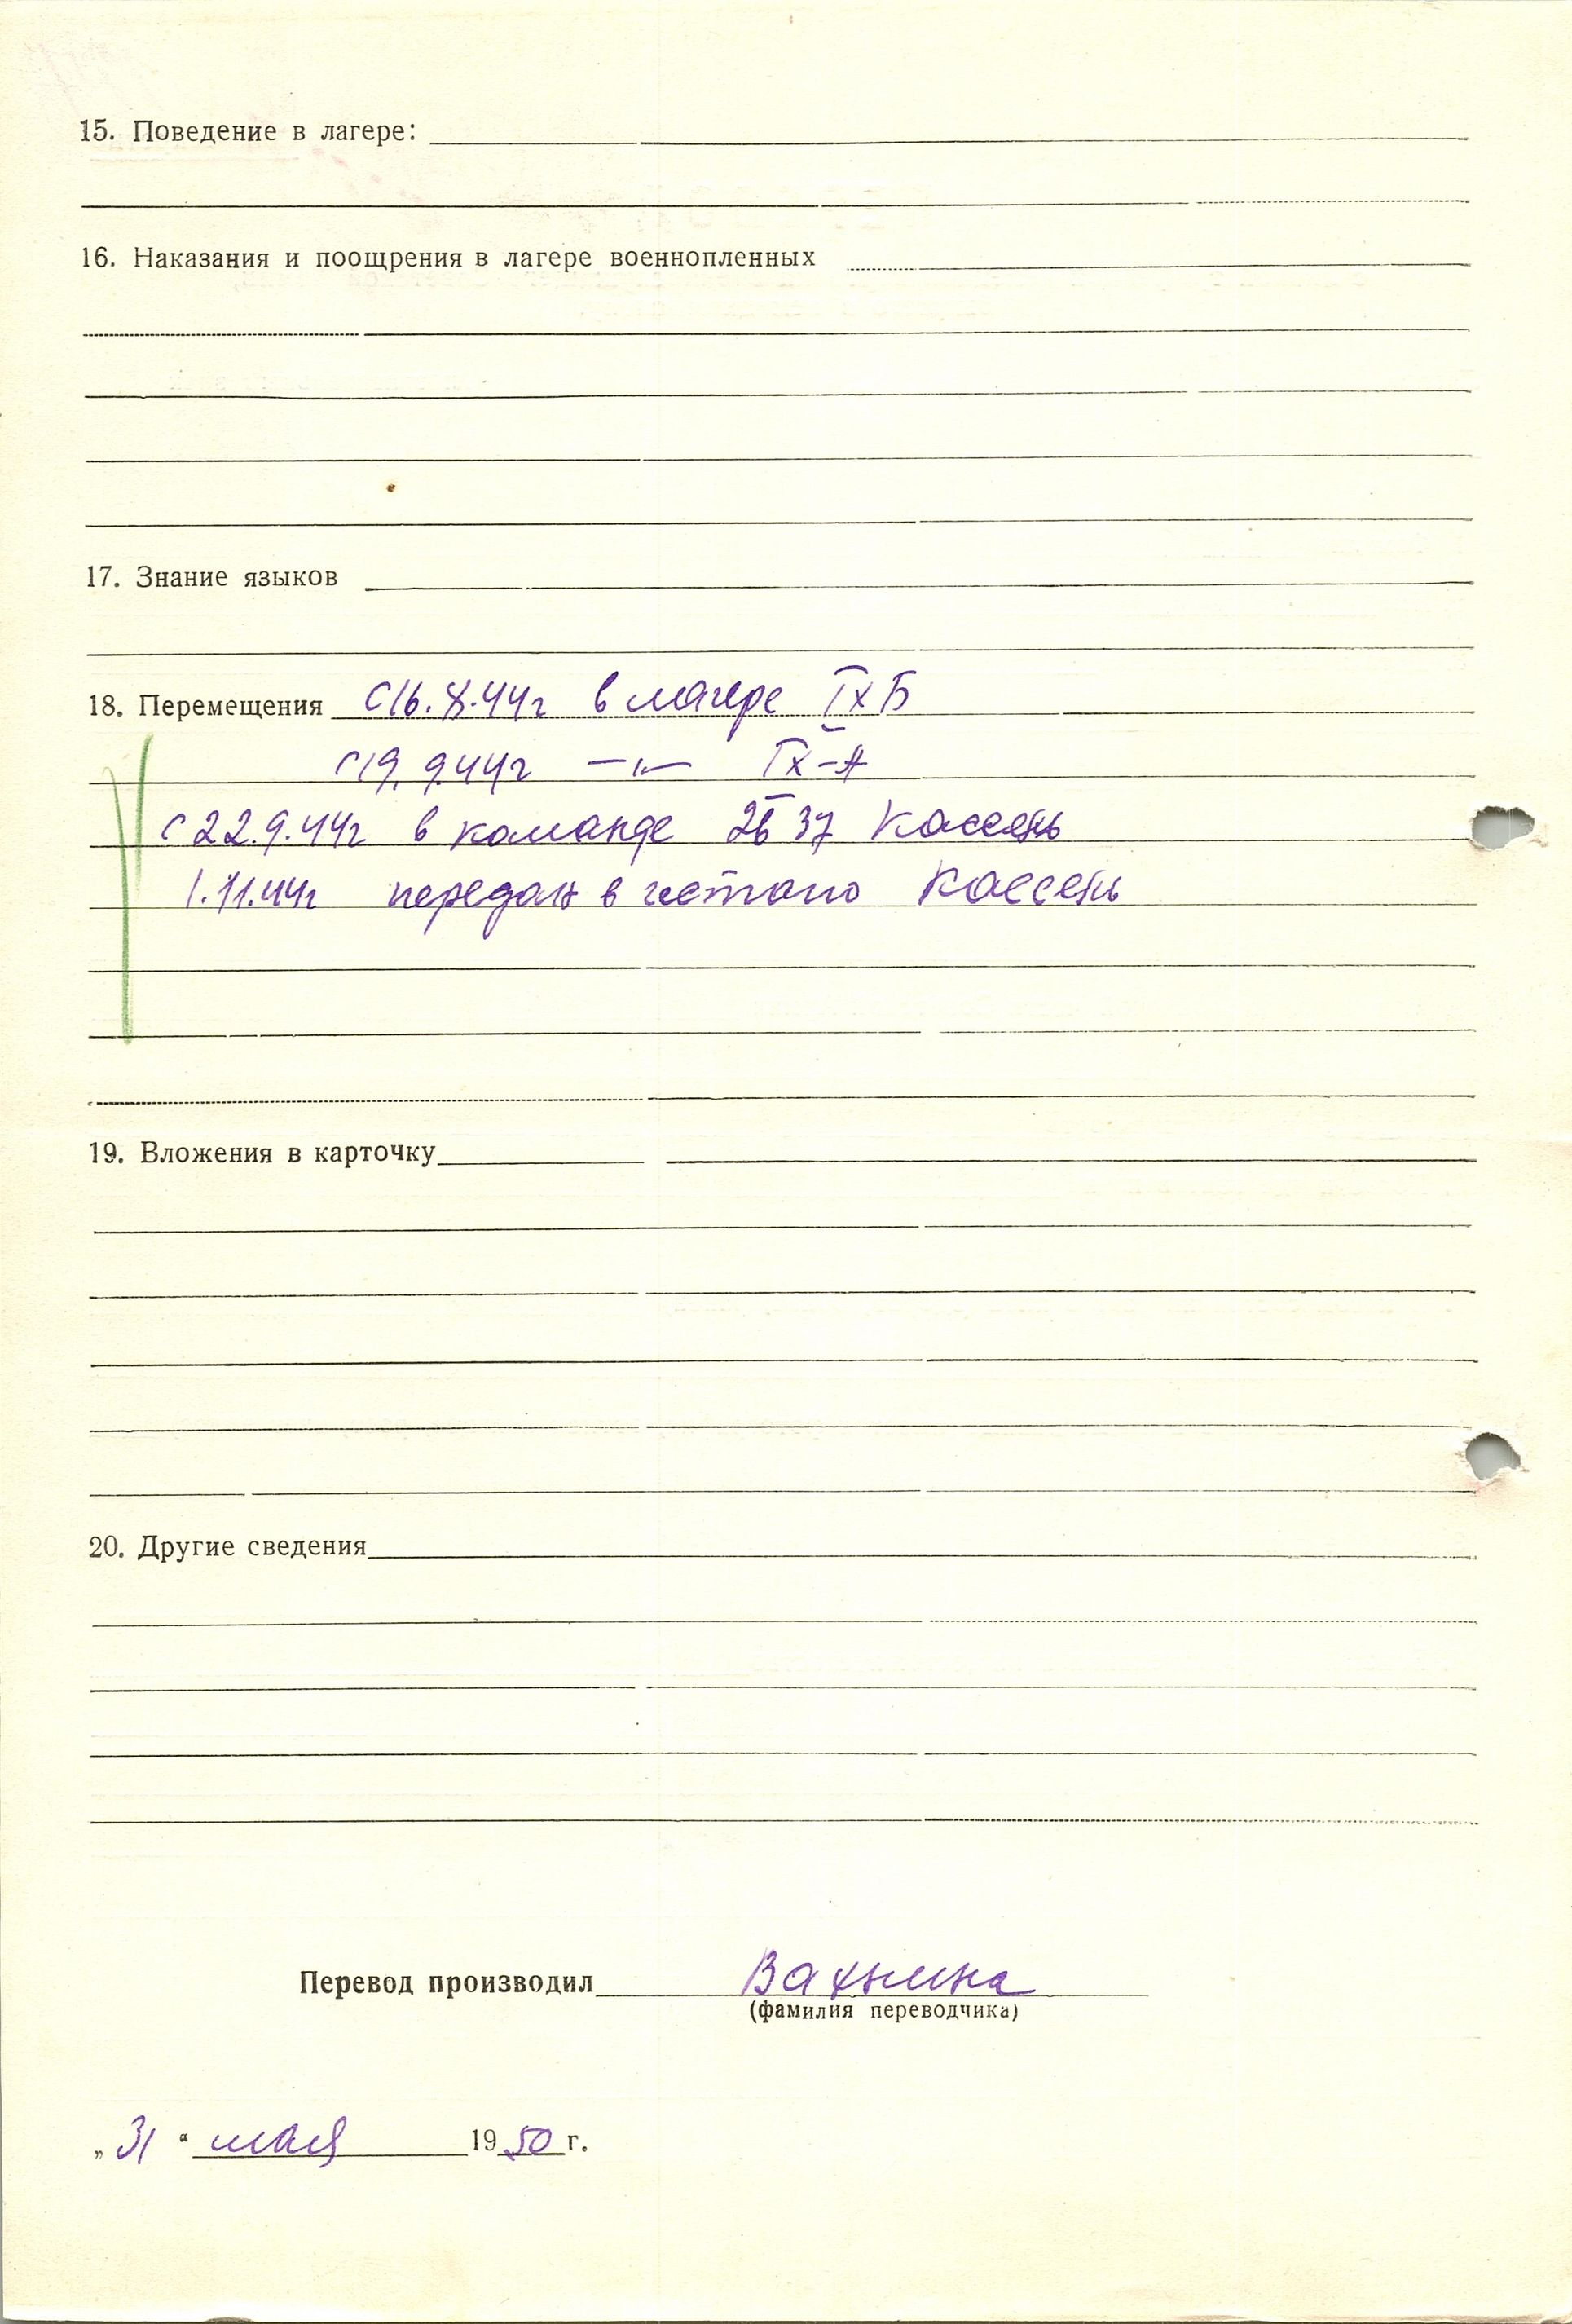 15. Поведение в лагере:
16. Наказания и поощрения в лагере военнопленных
17. Знание языков
18. Перемещения с 16.8.44г в лагере IX Б
с 19.9.44г —"— IX-А
с 22.9.44г в команде 2637 Кассель
1.11.44г передан в гестапо Кассель
19. Вложения в карточку
20. Другие сведения
Перевод производил Вахнина
(фамилия переводчика)
„31“ мая 1950 г.